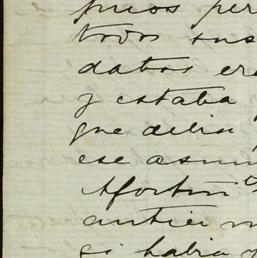 pues per
todos sus
datos er
y estaba
que debia
ese asun
Afortun<sup>te</sup>
antier m
si habia